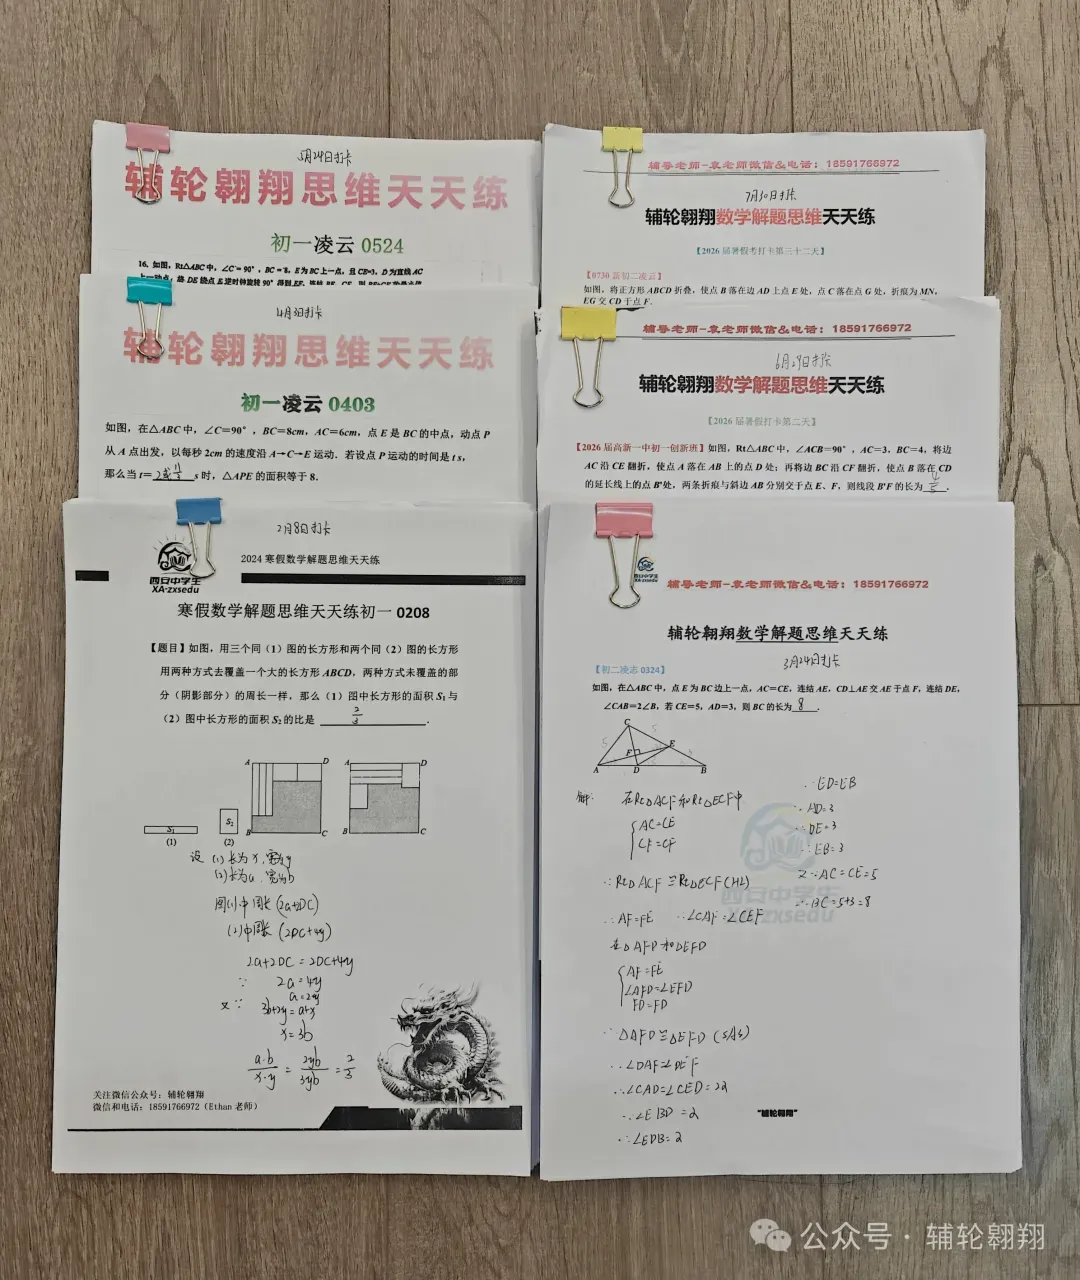 5月24日打卡
辅轮翱翔思维天天练
初一凌云 0524
16. 如图，Rt△ABC 中，∠C = 90°，BC = 8，E 为 BC 上一点，且 CE=3，D 为直线 AC
辅导老师-袁老师微信&电话：18591766972
7月30日打卡
辅轮翱翔数学解题思维天天练
【2026 届暑假考打卡第三十二天】
【0730 新初二凌云】
如图，将正方形 ABCD 折叠，使点 B 落在边 AD 上点 E 处，点 C 落在点 G 处，折痕为 MN，
EG 交 CD 于点 F．
4月3日打卡
辅轮翱翔思维天天练
初一凌云 0403
如图，在△ABC 中，∠C＝90°，BC＝8cm，AC＝6cm，点 E 是 BC 的中点，动点 P
从 A 点出发，以每秒 2cm 的速度沿 A→C→E 运动．若设点 P 运动的时间是 t s，
那么当 t= s 时，△APE 的面积等于 8．
辅导老师-袁老师微信&电话：18591766972
6月29日打卡
辅轮翱翔数学解题思维天天练
【2026 届暑假打卡第二天】
【2026 届高新一中初一创新班】如图，Rt△ABC 中，∠ACB＝90°，AC＝3，BC＝4，将边
AC 沿 CE 翻折，使点 A 落在 AB 上的点 D 处；再将边 BC 沿 CF 翻折，使点 B 落在 CD
的延长线上的点 B′处，两条折痕与斜边 AB 分别交于点 E、F，则线段 B′F 的长为 4/5 ．
2月8日打卡
西安中学生
XA-zxsedu
2024 寒假数学解题思维天天练
寒假数学解题思维天天练初一 0208
【题目】如图，用三个同（1）图的长方形和两个同（2）图的长方形
用两种方式去覆盖一个大的长方形 ABCD，两种方式未覆盖的部
分（阴影部分）的周长一样，那么（1）图中长方形的面积 S₁与
（2）图中长方形的面积 S₂的比是 2/3 ．
A D A D
S₁ S₂ B C B C
(1) (2)
设 (1)长为x，宽为y
(2)长为a，宽为b
图(1)中周长(2a+2DC)
(2)中周长(2DC+4y)
2a+2DC=2DC+4y
∵ 2a=4y
a=2y
又∵ 3b+2y=a+x
x=3b
a·b/x·y = 2yb/3yb = 2/3
关注微信公众号：辅轮翱翔
微信和电话：18591766972（Ethan 老师）
西安中学生
XA-zxsedu
辅导老师-袁老师微信&电话：18591766972
辅轮翱翔数学解题思维天天练
3月24日打卡
【初二凌志 0324】
如图，在△ABC 中，点 E 为 BC 边上一点，AC＝CE，连结 AE，CD⊥AE 交 AE 于点 F，连结 DE，
∠CAB＝2∠B，若 CE＝5，AD＝3，则 BC 的长为 8 ．
C
F E
A D B
解: 在Rt△ACF和Rt△ECF中
AC=CE
CF=CF
∴Rt△ACF≌Rt△ECF(HL)
∴AF=FE ∴∠CAF=∠CEF
在△AFD和△EFD
AF=FE
∠AFD=∠EFD
FD=FD
∴△AFD≌△EFD (SAS)
∴∠DAF=∠DEF
∴∠CAD=∠CED=22
∴∠EBD=2
∴∠EDB=2
∴ED=EB
∵AD=3
∴DE=3
∴EB=3
又∵AC=CE=5
∴BC=5+3=8
西安中学生
XA-zxsedu
"辅轮翱翔"
公众号 · 辅轮翱翔